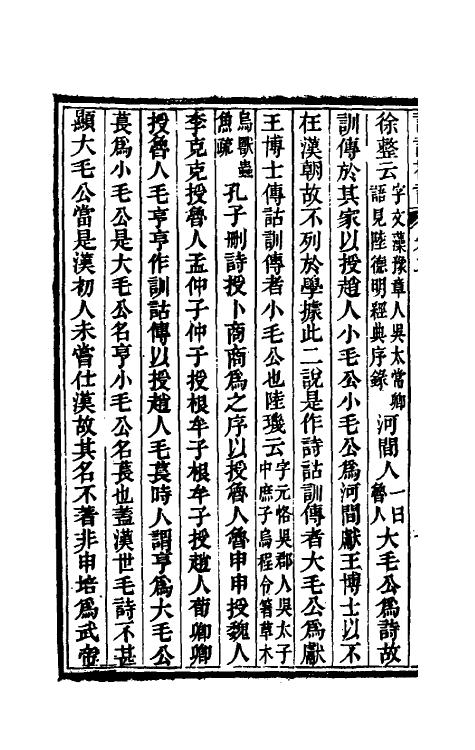 徐整云字文藻豫章人吳太常卿語見陸德明經典序錄河間人一曰魯人大毛公爲詩故
訓傳於其家以授趙人小毛公小毛公爲河間獻王博士以不
在漢朝故不列於學據此二說是作詩詁訓傳者大毛公爲獻
王博士傳詁訓傳者小毛公也陸璣云字元恪吳郡人吳太子中庶子烏程令著草木
鳥獸蟲魚疏孔子刪詩授卜商商爲之序以授魯人魯申申授魏人
李克克授魯人孟仲子仲子授根牟子根牟子授趙人荀卿卿
授魯人毛亨亨作訓詁傳以授趙人毛萇時人謂亨爲大毛公
萇爲小毛公是大毛公名亨小毛公名萇也蓋漢世毛詩不甚
顯大毛公當是漢初人未嘗仕漢故其名不著非申培爲武帝